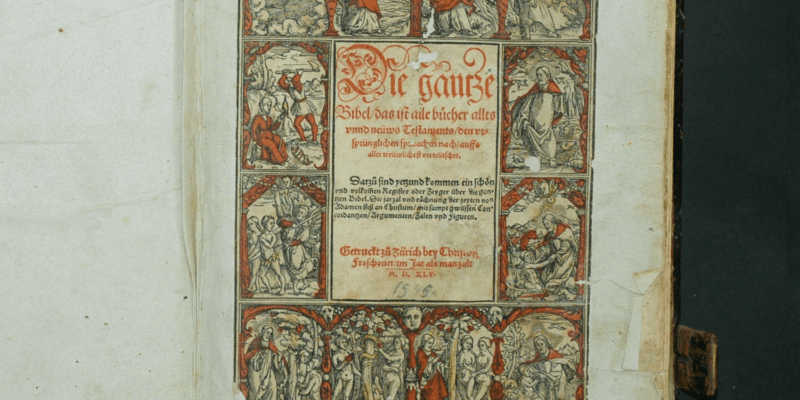 Die gantze
Bibel / das ist alle bücher altes
vnnd neüws Testaments / den vr-
sprünglichen spraachen nach / auffs
aller treüwlichest verteütschet.
Darzů sind yetzund kommen ein schön
vnd volkom̃en Register oder Zeyger über die gan-
tzen Bibel. Die jarzal vnd råchnung der zeyten von
Adamen biß an Christum / mit sampt gwüssen Con-
cordantzen / Argumenten / Zalen vnd Figuren.
Getruckt zů Zürich bey Christoffel
Froschouer / im Jar als man zalt
M. D. XLV.
1545.